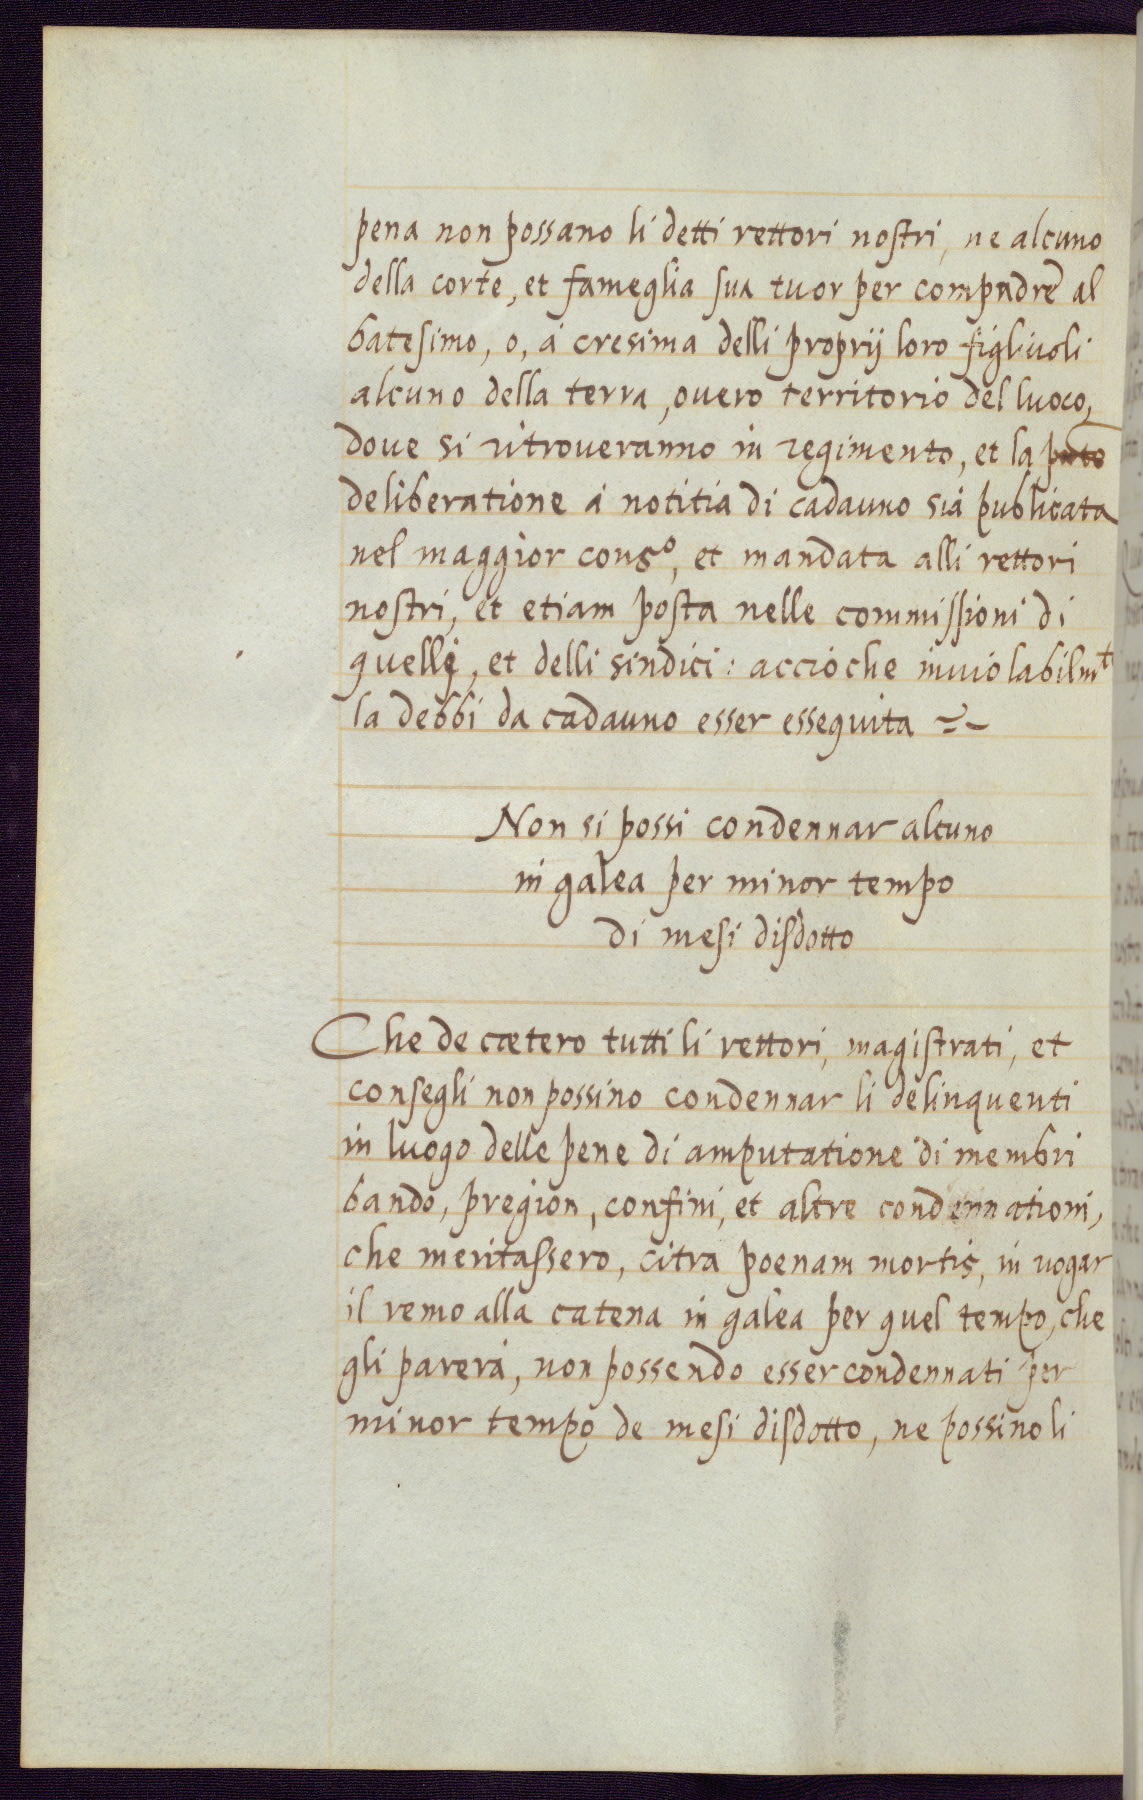 pena non possano li detti rettori nostri, ne alcuno
della corte, et fameglia sua tuor per compadre al
batesimo, o, à cresima delli proprij loro figliuoli
alcuno della terra, ouero territorio del luoco,
doue si ritroueranno in regimento, et la pnte
deliberatione à notitia di cadauno sia publicata
nel maggior consº, et mandata alli rettori
nostri, et etiam posta nelle commissioni di
quelli, et delli sindici: accioche inuiolabilmᵗ
la debbi da cadauno esser essequita
Non si possi condennar alcuno
in galea per minor tempo
di mesi disdotto
Che de cætero tutti li rettori, magistrati, et
consegli non possino condennar li delinquenti
in luogo delle pene di amputatione di membri
bando, pregion, confini, et altre condennationi,
che meritassero, citra poenam mortis, in uogar
il remo alla catena in galea per quel tempo, che
gli parerà, non possendo esser condennati per
minor tempo de mesi disdotto, ne possino li